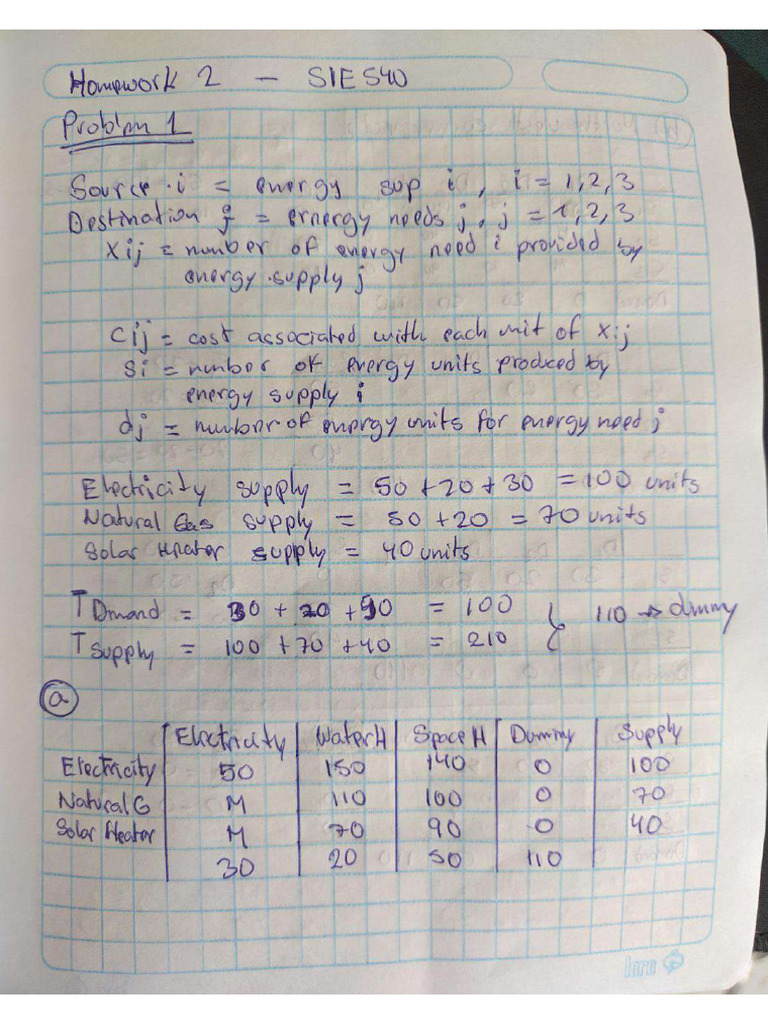 Homework 2 – SIE540
Problm 1
Source i = energy sup i, i = 1,2,3
Destination j = ernergy needs j, j = 1,2,3
Xij = number of energy need i provided by
energy supply j
Cij = cost associated with each unit of Xij
Si = number of energy units produced by
energy supply i
dj = number of energy units for energy need j
Electricity supply = 50 + 20 + 30 = 100 units
Natural Gas supply = 50 + 20 = 70 units
Solar Heater supply = 40 units
T Dmand = 30 + 20 + 50 = 100 } 110 → dummy
T Supply = 100 + 70 + 40 = 210
a
Electricity WaterH Space H Dummy Supply
Electricity 50 150 140 0 100
Natural G M 110 100 0 70
Solar Heater M 70 90 0 40
30 20 50 110